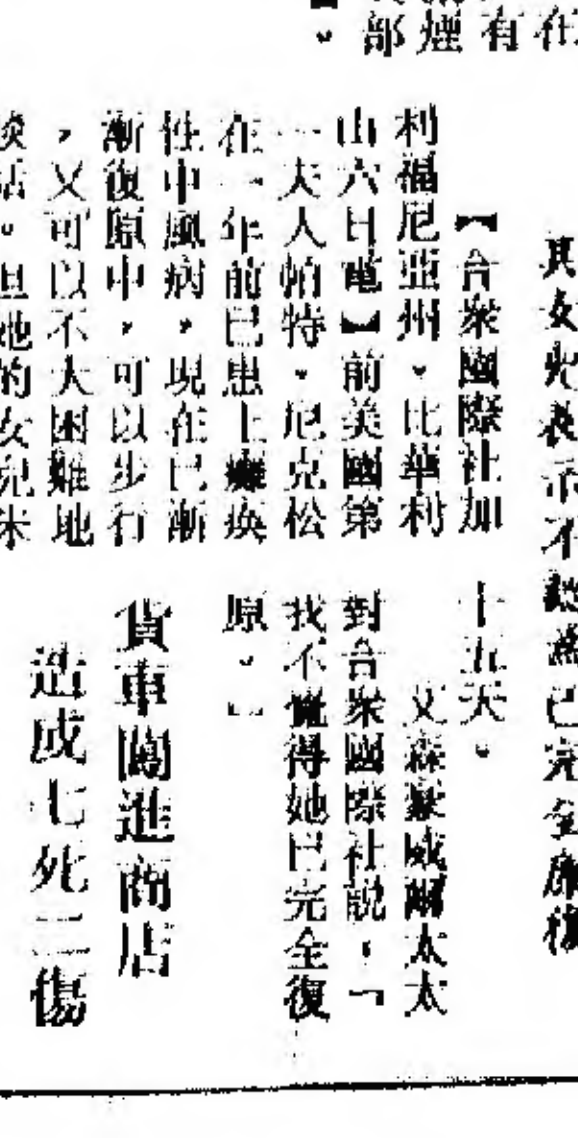 在
有
煙
部。
其女兒表示不認為已完全康復
【合衆國際社加
利福尼亞州・比華利
山六日電】前美國第
一夫人帕特・尼克松
在一年前已患上癱瘓
性中風病，現在已漸
漸復原中，可以步行
，又可以不大困難地
談話。但她的女兒朱
十五天。
又森豪威爾太太
對合衆國際社説，「
我不覺得她已完全復
原。」
貨車闖進商店
造成七死二傷